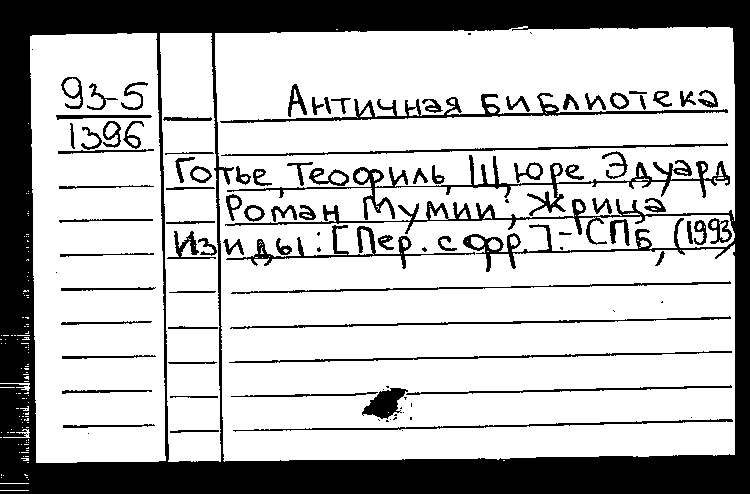 93-5
1396
Античная библиотека
Готье, Теофиль, Щюре, Эдуард
Роман Мумии; Жрица
Изиды: [Пер. с фр.]:- СПБ, (1993)